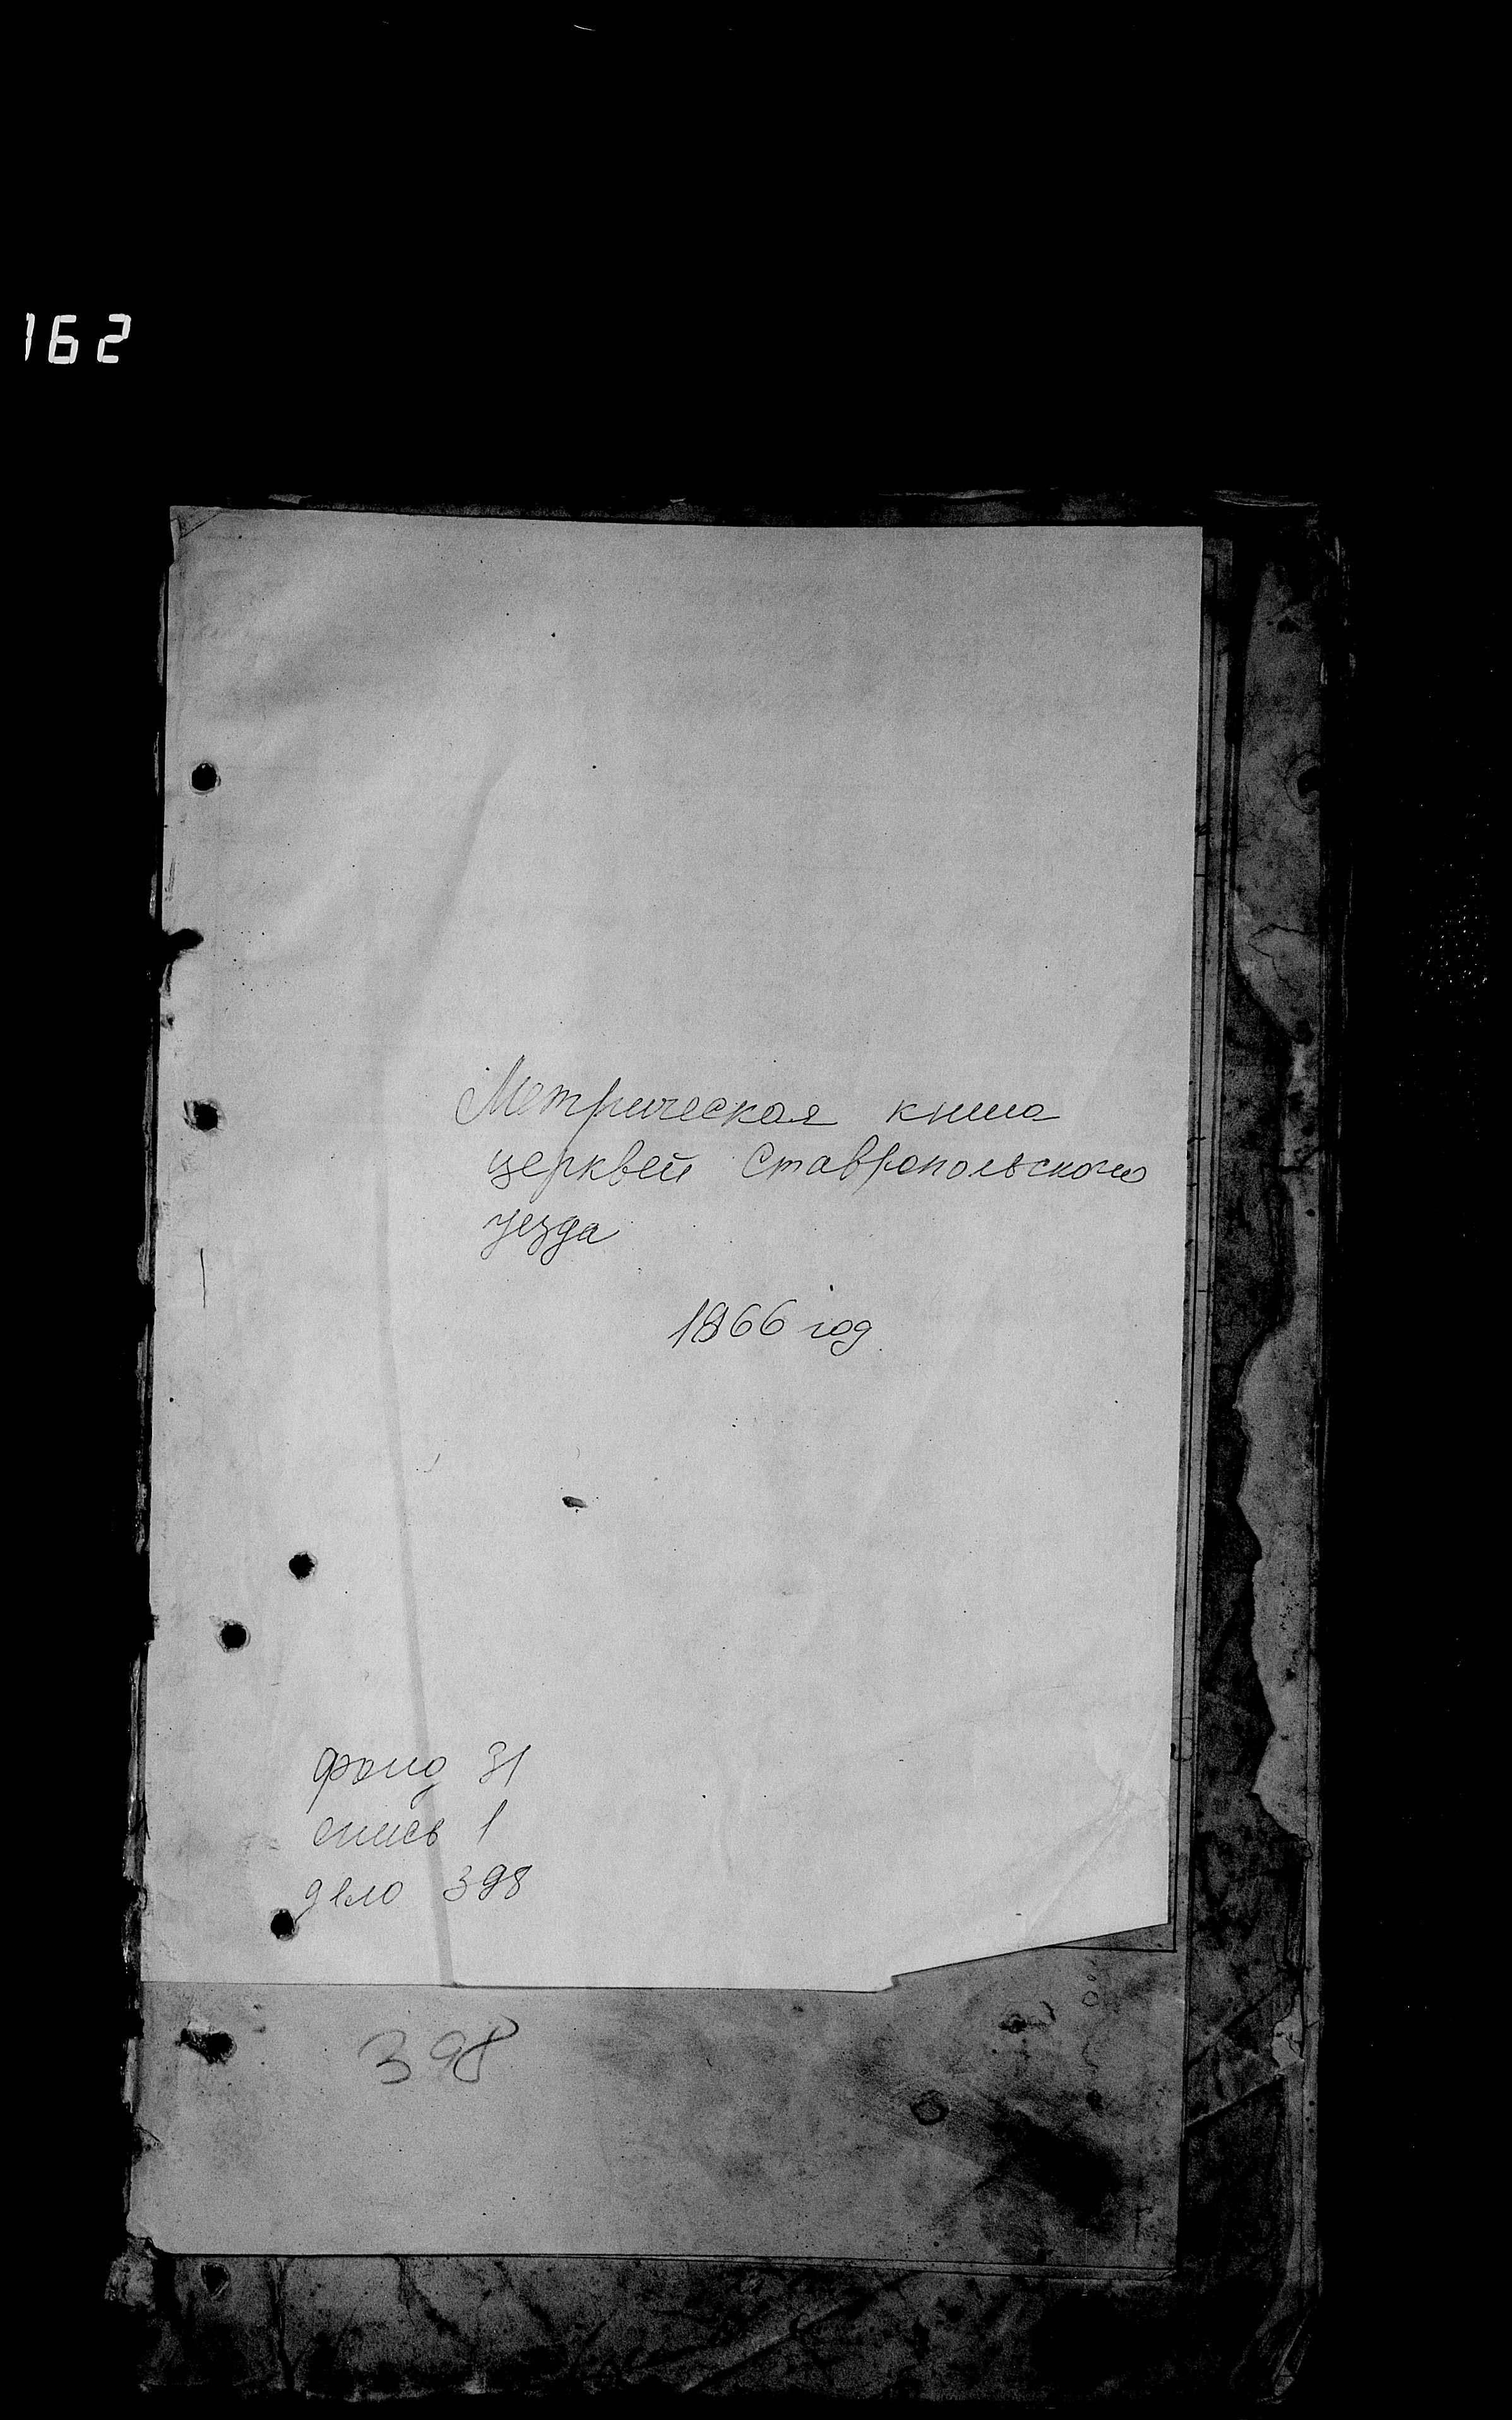 162
Метрическая книга
церквей Ставропольского
уезда
1866 год
фонд 31
опись 1
дело 398
398